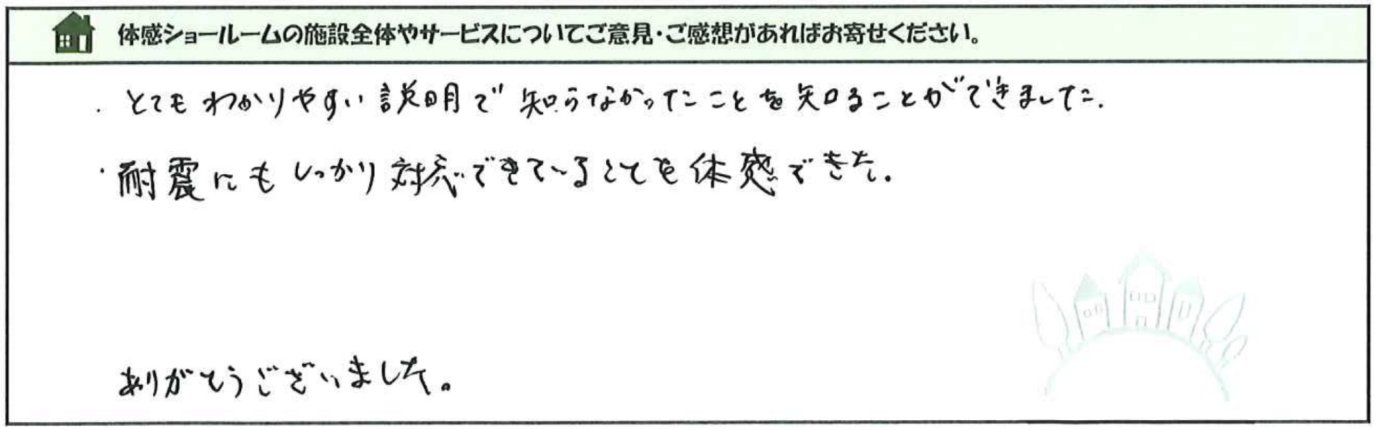 体感ショールームの施設全体やサービスについてご意見・ご感想があればお寄せください。
・とてもわかりやすい説明で知らなかったことを知ることができました。
・耐震にもしっかり対応できていることを体感できた。
ありがとうございました。